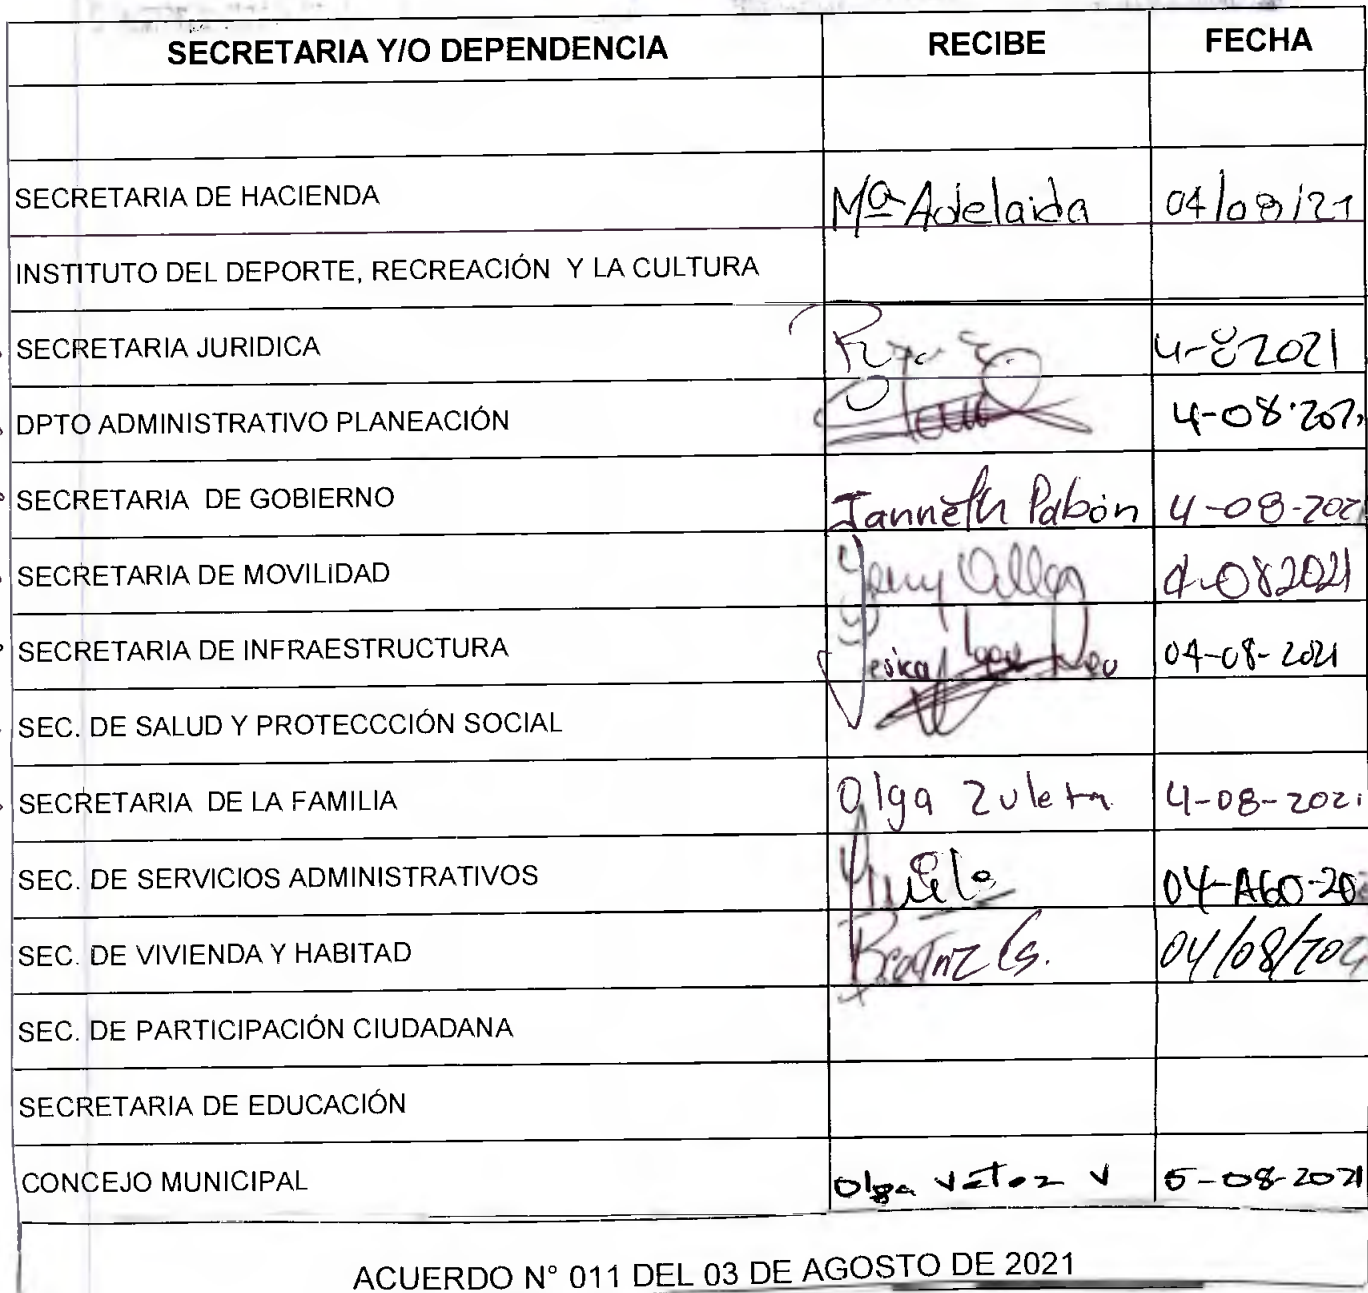 SECRETARIA Y/O DEPENDENCIA RECIBE FECHA
SECRETARIA DE HACIENDA Mª Adelaida 04/08/21
INSTITUTO DEL DEPORTE, RECREACIÓN Y LA CULTURA
SECRETARIA JURIDICA 4-8 2021
DPTO ADMINISTRATIVO PLANEACIÓN 4-08-202
SECRETARIA DE GOBIERNO Janneth Pabón 4-08-2021
SECRETARIA DE MOVILIDAD 4-08 2021
SECRETARIA DE INFRAESTRUCTURA Yesica 04-08-2021
SEC. DE SALUD Y PROTECCCIÓN SOCIAL
SECRETARIA DE LA FAMILIA Olga Zuleta 4-08-2021
SEC. DE SERVICIOS ADMINISTRATIVOS 04-AGO-20
SEC. DE VIVIENDA Y HABITAD Beatriz Cs. 04/08/202
SEC. DE PARTICIPACIÓN CIUDADANA
SECRETARIA DE EDUCACIÓN
CONCEJO MUNICIPAL Olga V 5-08-2021
ACUERDO N° 011 DEL 03 DE AGOSTO DE 2021